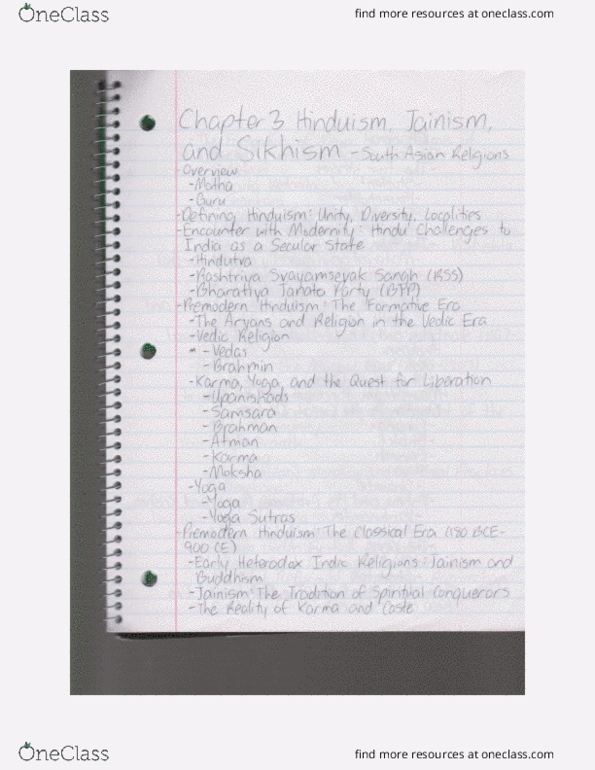 OneClass
find more resources at oneclass.com
Chapter 3 Hinduism, Jainism,
and Sikhism - South Asian Religions
Overview
-Matha
-Guru
-Defining Hinduism: Unity, Diversity, Localities
-Encounter with Modernity: Hindu Challenges to
India as a Secular State
-Hindutva
-Rashtriya Svayamsevak Sangh (RSS)
-Bharatiya Janata Party (BJP)
-Premodern Hinduism: The Formative Era
-The Aryans and Religion in the Vedic Era
-Vedic Religion
-Vedas
-Brahmin
-Karma, Yoga, and the Quest for Liberation
-Upanishads
-Samsara
-Brahman
-Atman
-Karma
-Moksha
-Yoga
-Yoga
-Yoga Sutras
-Premodern Hinduism: The Classical Era (180 BCE-
900 CE)
-Early Heterodox Indic Religions: Jainism and
Buddhism
-Jainism: The Tradition of Spiritual Conquerors
-The Reality of Karma and Caste
OneClass
find more resources at oneclass.com